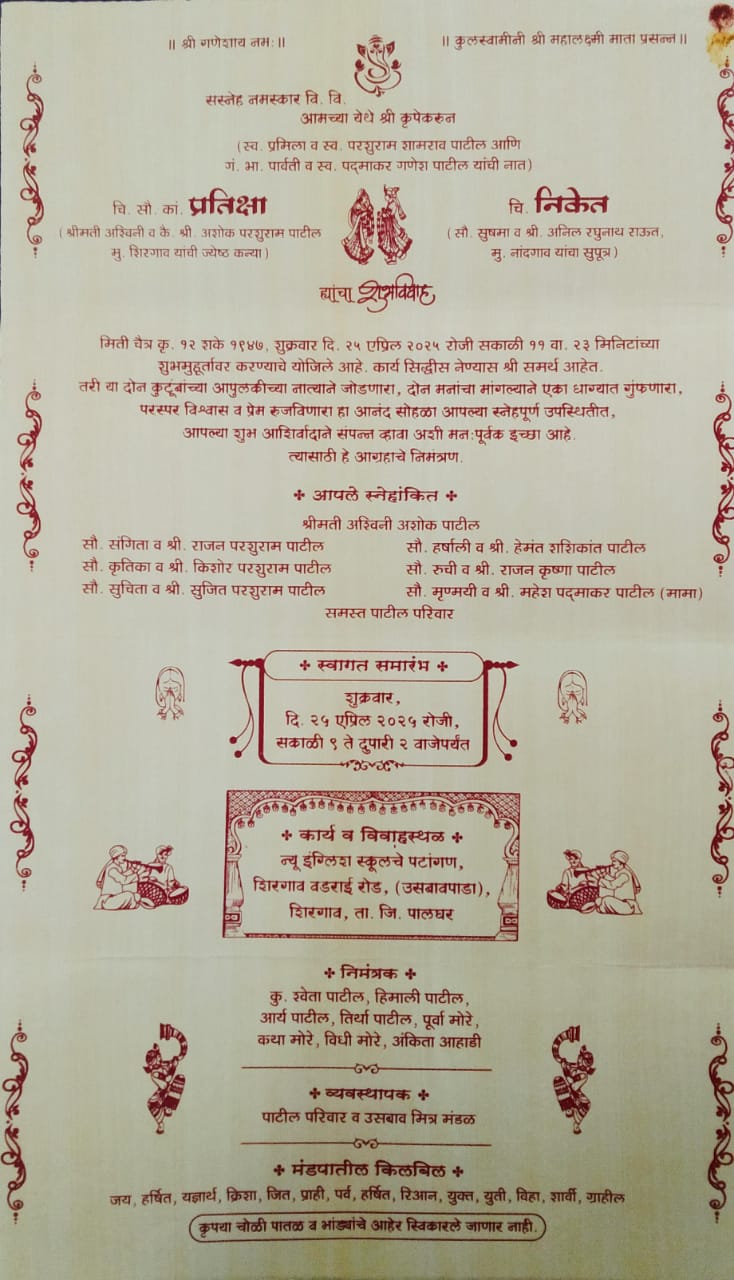 ॥ श्री गणेशाय नमः॥
॥ कुलस्वामीनी श्री महालक्ष्मी माता प्रसन्न॥
सस्नेह नमस्कार वि. वि.
आमच्या येथे श्री कृपेकरुन
(स्व. प्रमिला व स्व. परशुराम शामराव पाटील आणि
गं. भा. पार्वती व स्व. पद्माकर गणेश पाटील यांची नात)
चि. सौ. कां. प्रतिक्षा
(श्रीमती अश्विनी व कै. श्री. अशोक परशुराम पाटील
मु. शिरगाव यांची ज्येष्ठ कन्या)
चि. निकेत
(सौ. सुषमा व श्री. अनिल रघुनाथ राऊत,
मु. नांदगाव यांचा सुपूत्र)
ह्यांचा शुभविवाह
मिती चैत्र कृ. १२ शके १९४७, शुक्रवार दि. २५ एप्रिल २०२५ रोजी सकाळी ११ वा. २३ मिनिटांच्या
शुभमुहूर्तावर करण्याचे योजिले आहे. कार्य सिद्धीस नेण्यास श्री समर्थ आहेत.
तरी या दोन कुटूंबांच्या आपुलकीच्या नात्याने जोडणारा, दोन मनांचा मांगल्याने एका धाग्यात गुंफणारा,
परस्पर विश्वास व प्रेम रुजविणारा हा आनंद सोहळा आपल्या स्नेहपूर्ण उपस्थितीत,
आपल्या शुभ आशिर्वादाने संपन्न व्हावा अशी मनःपूर्वक इच्छा आहे.
त्यासाठी हे आग्रहाचे निमंत्रण.
✤ आपले स्नेहांकित ✤
श्रीमती अश्विनी अशोक पाटील
सौ. संगिता व श्री. राजन परशुराम पाटील
सौ. हर्षाली व श्री. हेमंत शशिकांत पाटील
सौ. कृतिका व श्री. किशोर परशुराम पाटील
सौ. रुची व श्री. राजन कृष्णा पाटील
सौ. सुचिता व श्री. सुजित परशुराम पाटील
सौ. मृण्मयी व श्री. महेश पद्माकर पाटील (मामा)
समस्त पाटील परिवार
✤ स्वागत समारंभ ✤
शुक्रवार,
दि. २५ एप्रिल २०२५ रोजी,
सकाळी ९ ते दुपारी २ वाजेपर्यंत
✤ कार्य व विवाहस्थळ ✤
न्यू इंग्लिश स्कूलचे पटांगण,
शिरगाव वडराई रोड, (उसबावपाडा),
शिरगाव, ता. जि. पालघर
✤ निमंत्रक ✤
कु. श्वेता पाटील, हिमाली पाटील,
आर्य पाटील, तिर्था पाटील, पूर्वा मोरे,
कथा मोरे, विधी मोरे, अंकिता आहाडी
✤ व्यवस्थापक ✤
पाटील परिवार व उसबाव मित्र मंडळ
✤ मंडपातील किलबिल ✤
जय, हर्षित, यज्ञार्थ, क्रिशा, जित, प्राही, पर्व, हर्षित, रिआन, युक्त, युती, विहा, शार्वी, ग्राहील
कृपया चोळी पातळ व भांड्यांचे आहेर स्विकारले जाणार नाही.